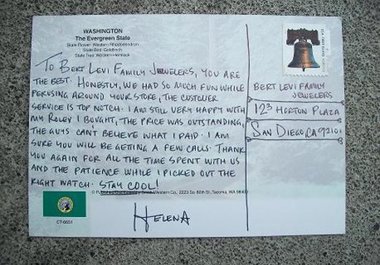 WASHINGTON
The Evergreen State
State Flower: Western Rhododendron
State Bird: Goldfinch
State Tree: Western Hemlock
TO BERT LEVI FAMILY JEWELERS, YOU ARE
THE BEST. HONESTLY, WE HAD SO MUCH FUN WHILE
PERUSING AROUND YOUR STORE, THE CUSTOMER
SERVICE IS TOP NOTCH. I AM STILL VERY HAPPY WITH
MY ROLEX I BOUGHT, THE PRICE WAS OUTSTANDING,
THE GUYS CAN'T BELIEVE WHAT I PAID. I AM
SURE YOU WILL BE GETTING A FEW CALLS. THANK
YOU AGAIN FOR ALL THE TIME SPENT WITH US
AND THE PATIENCE WHILE I PICKED OUT THE
RIGHT WATCH. STAY COOL!
HELENA
CT-6651
BERT LEVI FAMILY
JEWELERS
123 HORTON PLAZA
SAN DIEGO CA 92101